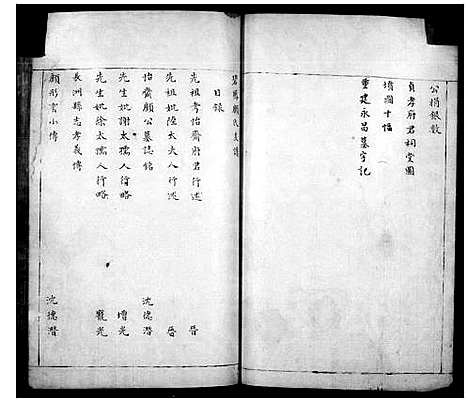 公捐銀數
貞孝府君祠堂圖
墳圖十幅
重建永昌墓寺記
顧氏支譜
目錄
先祖考怡齋府君行述 晉
先祖妣陸太夫人行述 晉
怡齋顧公墓誌銘 沈德潛
先生妣謝太孺人行略 增光
先生妣徐太孺人行略 觀光
長洲縣志孝義傳
顧彤雲小傳 沈德潛